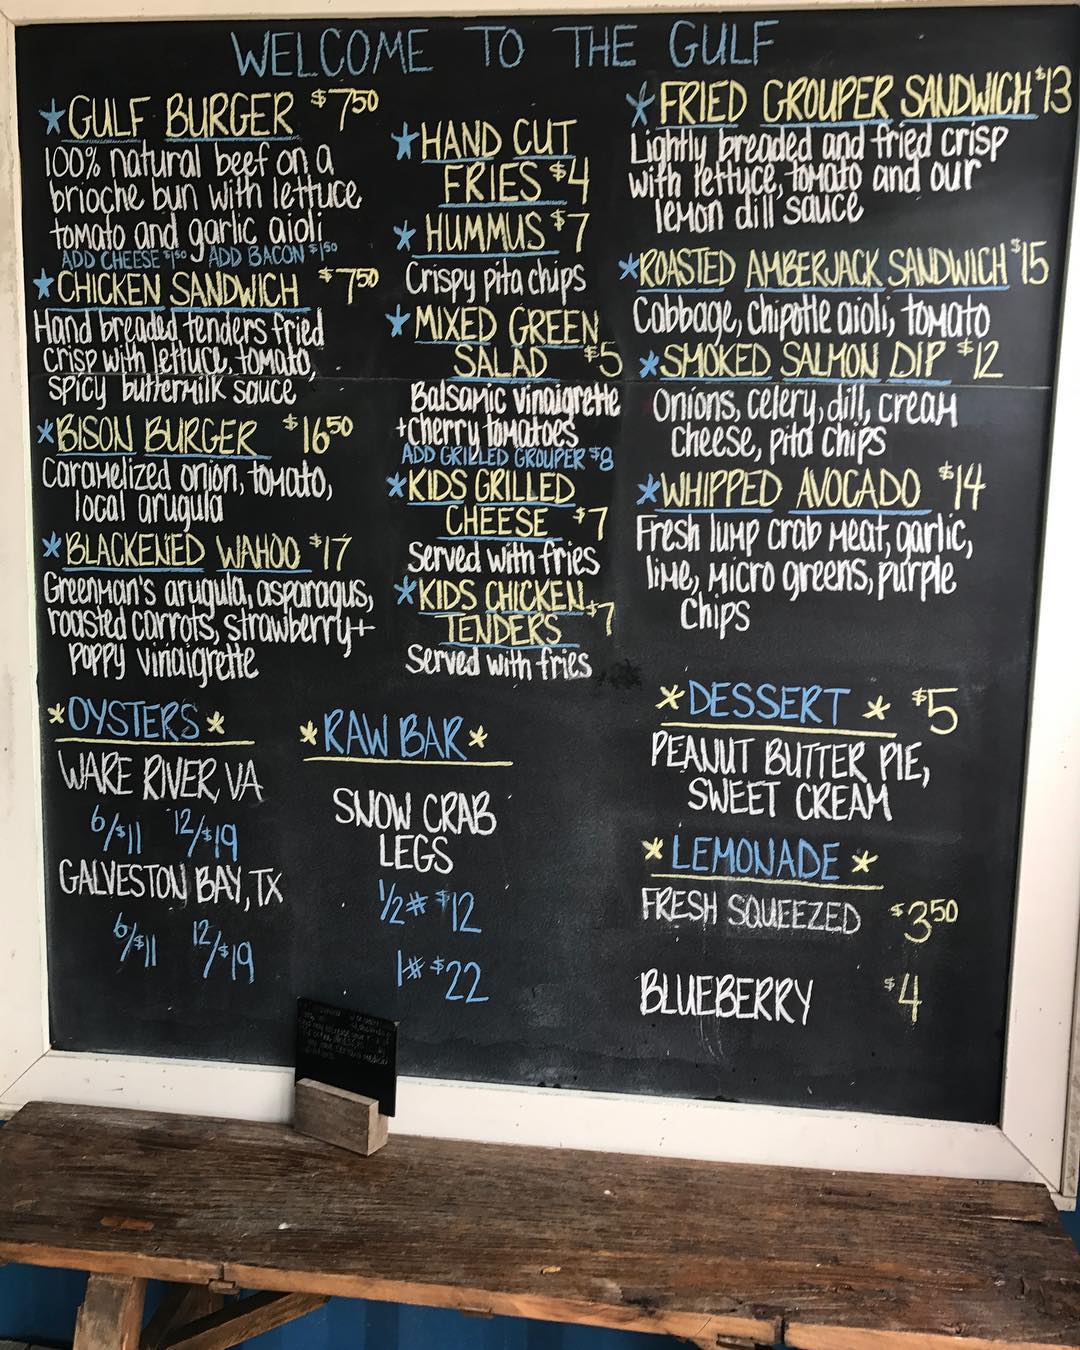 WELCOME TO THE GULF
*GULF BURGER $7.50
100% natural beef on a
brioche bun with lettuce
tomato and garlic aioli
ADD CHEESE $1.50 ADD BACON $1.50
*CHICKEN SANDWICH $7.50
Hand breaded tenders fried
crisp with lettuce, tomato,
spicy buttermilk sauce
*BISON BURGER $16.50
Caramelized onion, tomato,
local arugula
*BLACKENED WAHOO $17
Greenman's arugula, asparagus,
roasted carrots, strawberry +
poppy vinaigrette
*HAND CUT
FRIES $4
*HUMMUS $7
Crispy pita chips
*MIXED GREEN
SALAD $5
Balsamic vinaigrette
+cherry tomatoes
ADD GRILLED GROUPER $8
*KIDS GRILLED
CHEESE $7
Served with fries
*KIDS CHICKEN
TENDERS $7
Served with fries
*FRIED GROUPER SANDWICH $13
Lightly breaded and fried crisp
with lettuce, tomato and our
lemon dill sauce
*ROASTED AMBERJACK SANDWICH $15
Cabbage, chipotle aioli, tomato
*SMOKED SALMON DIP $12
Onions, celery, dill, cream
cheese, pita chips
*WHIPPED AVOCADO $14
Fresh lump crab meat, garlic,
lime, micro greens, purple
chips
*OYSTERS*
WARE RIVER, VA
6/$11 12/$19
GALVESTON BAY, TX
6/$11 12/$19
*RAW BAR*
SNOW CRAB
LEGS
1/2# $12
1# $22
*DESSERT* $5
PEANUT BUTTER PIE,
SWEET CREAM
*LEMONADE*
FRESH SQUEEZED $3.50
BLUEBERRY $4